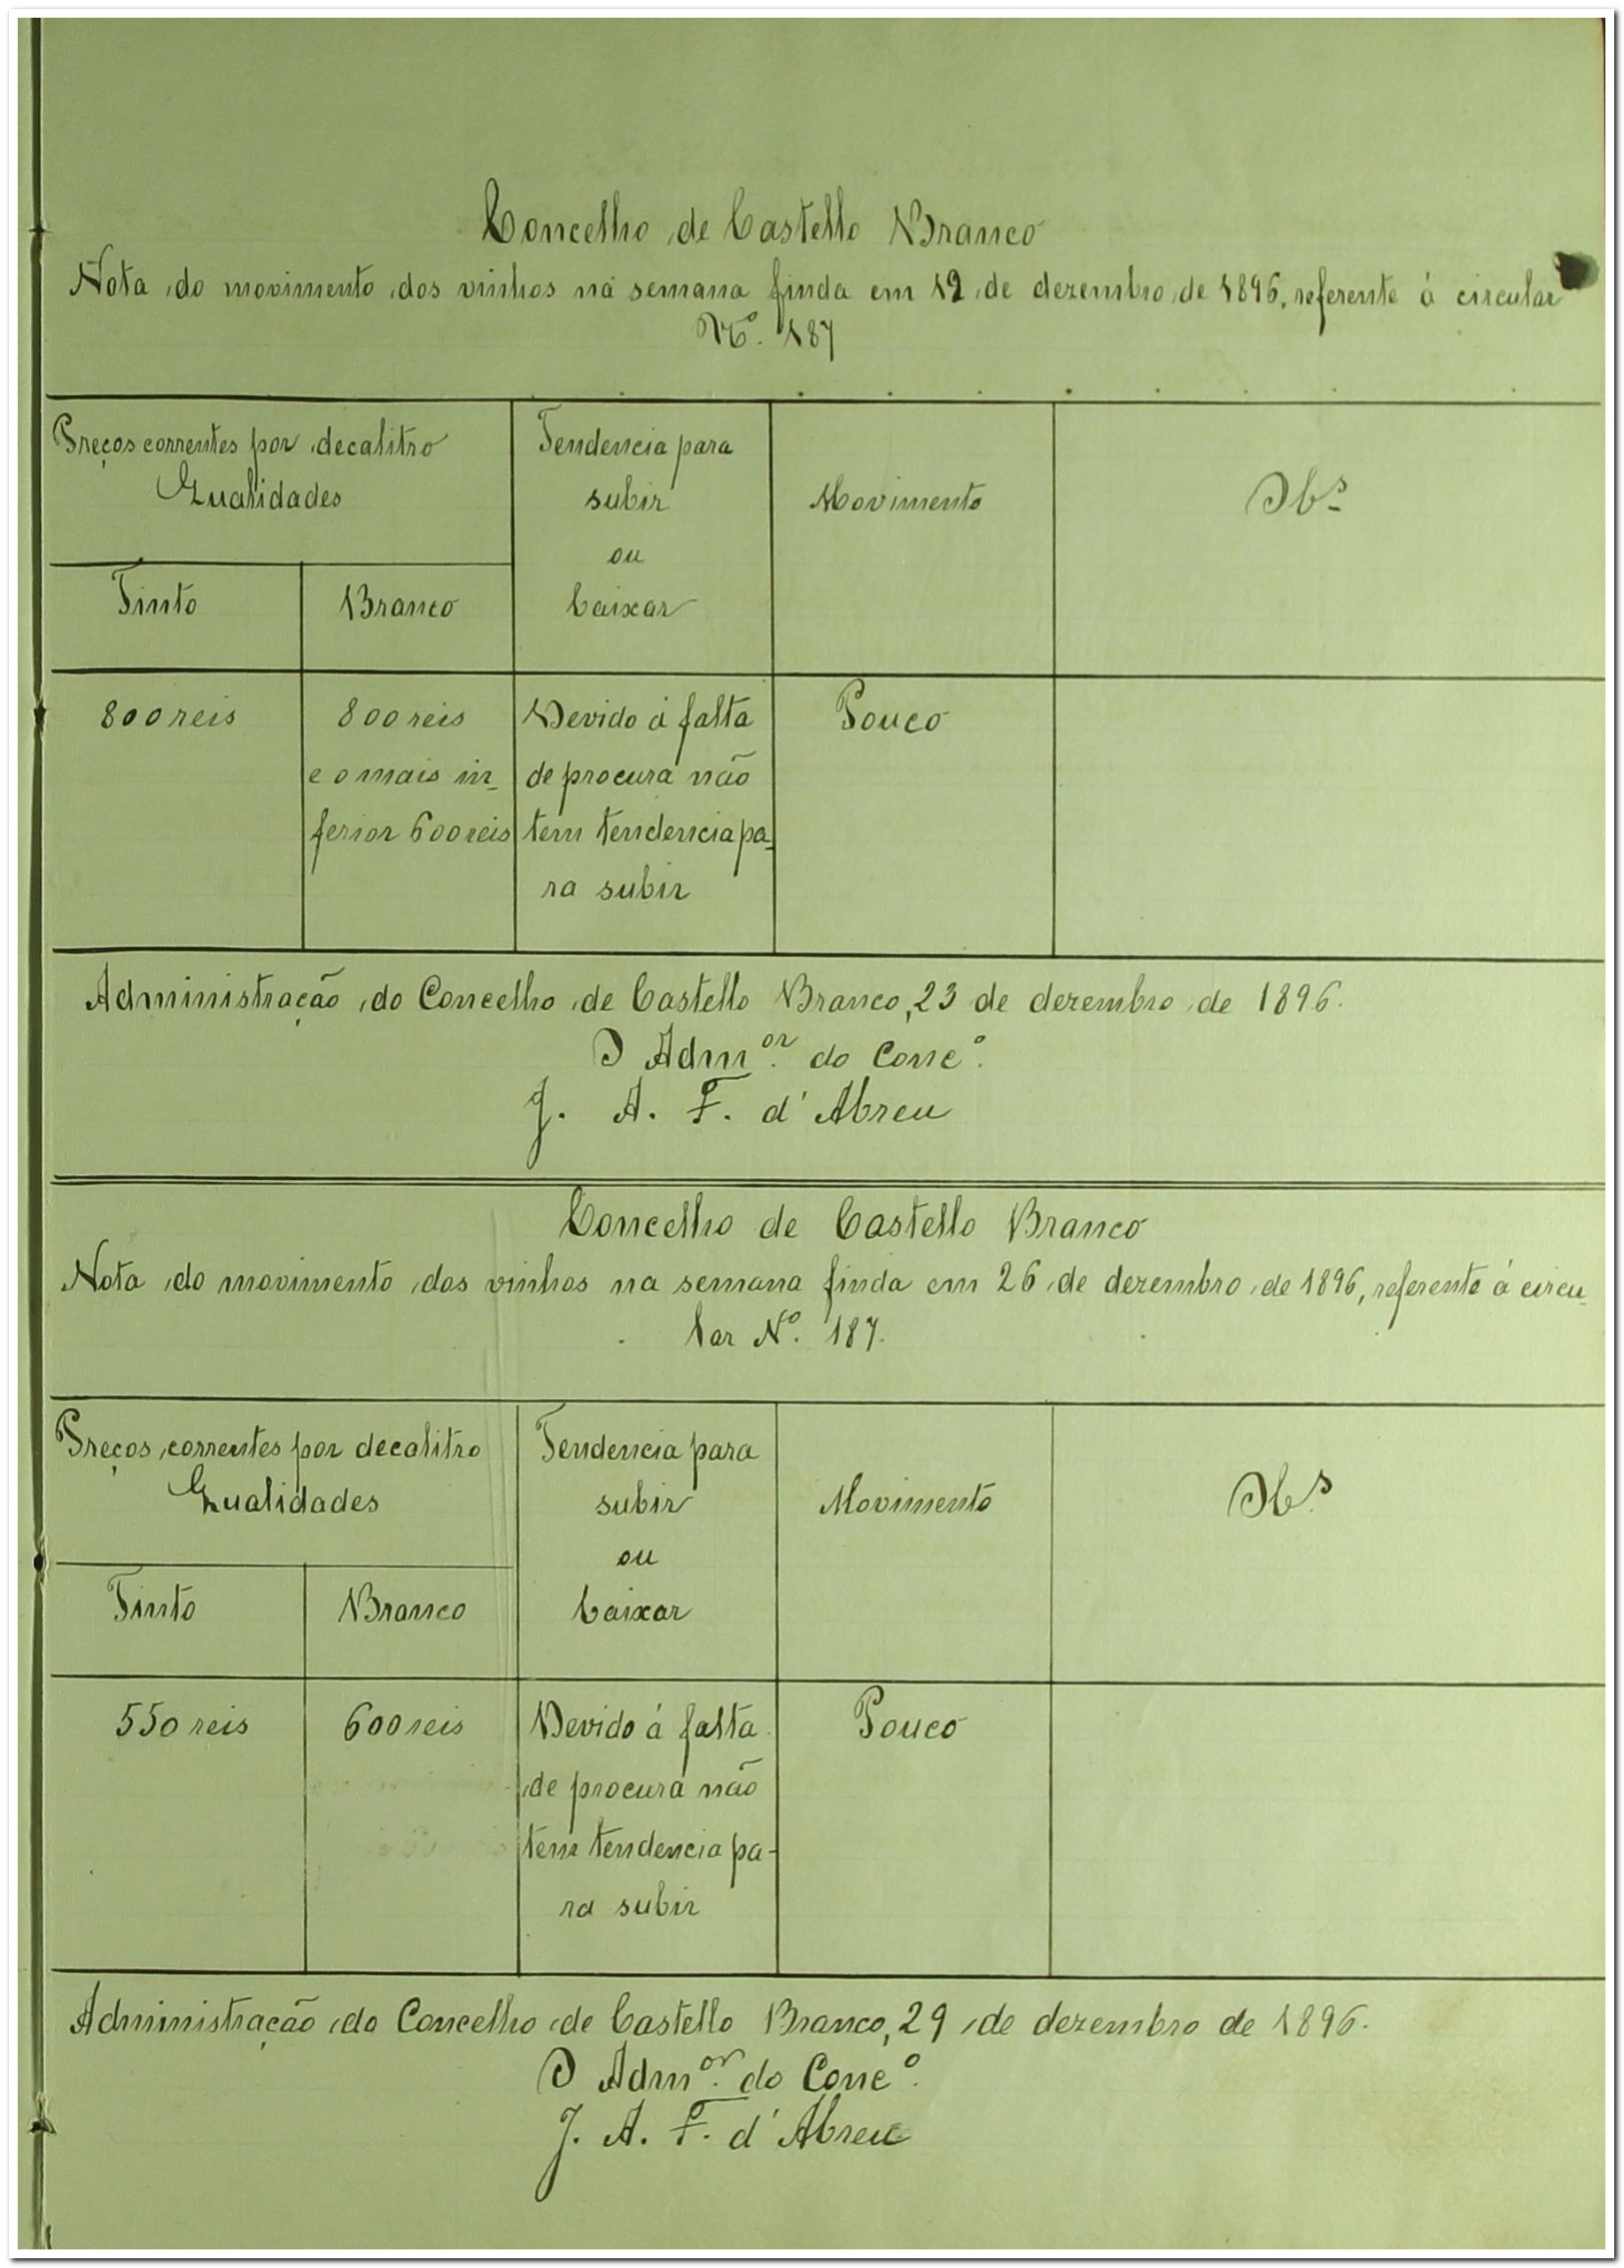 Concelho de Castello Branco
Nota do movimento dos vinhos na semana finda em 19 de dezembro de 1896, referente á circular
Nº. 187
Preços correntes por decalitro
Qualidades
Tinto
Branco
Tendencia para
subir
ou
baixar
Movimento
Obs
800 reis
800 reis
e o mais in-
ferior 600 reis
Devido á falta
de procura não
tem tendencia pa-
ra subir
Pouco
Administração do Concelho de Castello Branco, 23 de dezembro de 1896.
O Admor. do Conco.
J. A. F. d'Abreu
Concelho de Castello Branco
Nota do movimento dos vinhos na semana finda em 26 de dezembro de 1896, referente á circu-
lar Nº. 187.
Preços correntes por decalitro
Qualidades
Tinto
Branco
Tendencia para
subir
ou
baixar
Movimento
Obs
550 reis
600 reis
Devido á falta
de procura não
tem tendencia pa-
ra subir
Pouco
Administração do Concelho de Castello Branco, 29 de dezembro de 1896.
O Admor. do Conco.
J. A. F. d'Abreu